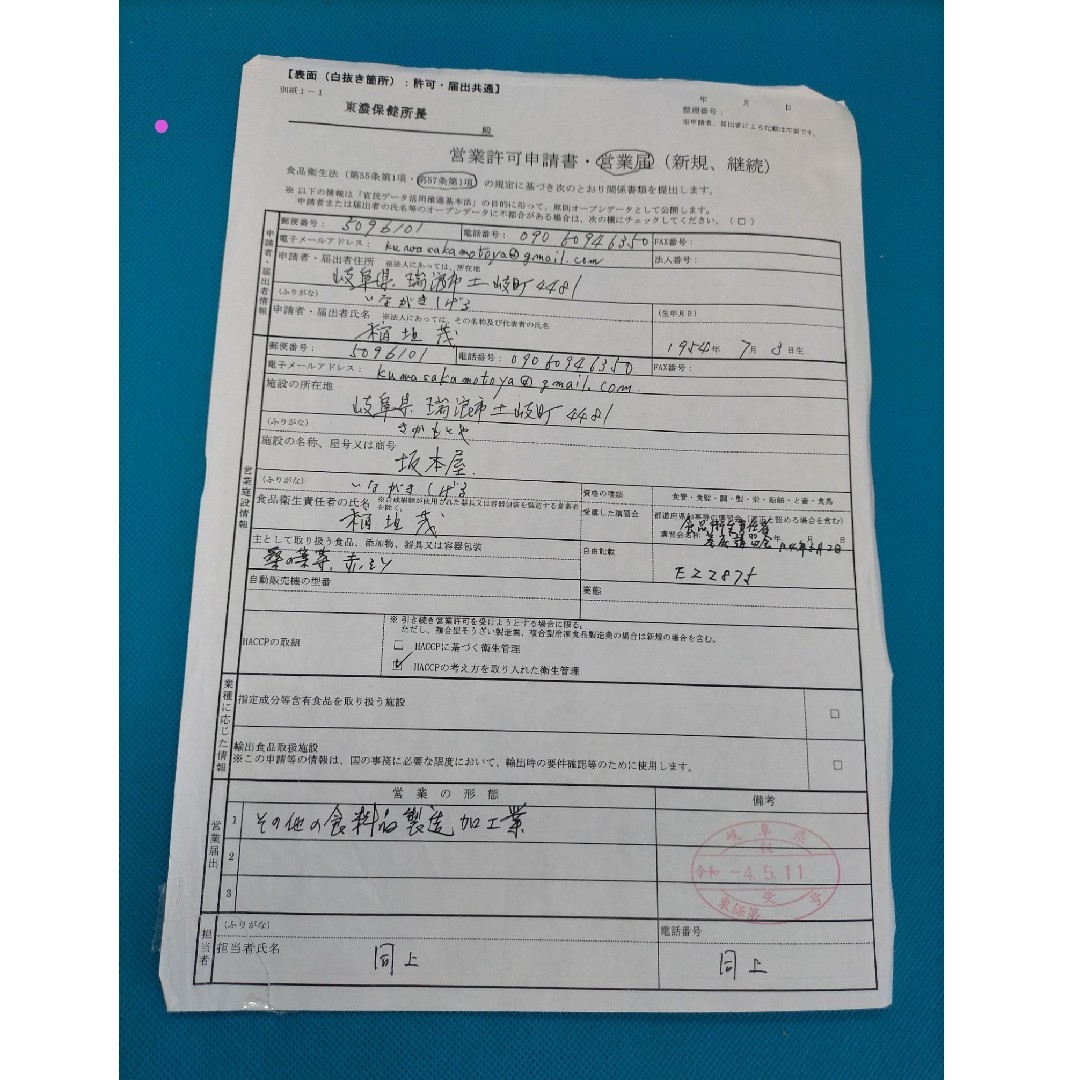 【表面（白抜き箇所）：許可・届出共通】
別紙1-1
年 月 日
整理番号：
東濃保健所長 殿
※申請者、届出者による記載は不要です。
営業許可申請書・営業届（新規、継続）
食品衛生法（第55条第1項・第57条第1項）の規定に基づき次のとおり関係書類を提出します。
※ 以下の情報は「官民データ活用推進基本法」の目的に沿って、原則オープンデータとして公開します。
申請者または届出者の氏名等のオープンデータに不都合がある場合は、次の欄にチェックしてください。（□）
申請者・届出者情報
郵便番号： 5096101 電話番号： 090 60946350 FAX番号：
電子メールアドレス： kuwasakamotoya@gmail.com 法人番号：
申請者・届出者住所 ※法人にあっては、所在地
岐阜県 瑞浪市土岐町4481
（ふりがな） いながきしげる
申請者・届出者氏名 ※法人にあっては、その名称及び代表者の氏名 （生年月日）
稲垣茂 1954年 7月 3日生
営業施設情報
郵便番号： 5096101 電話番号： 090 6094 6350 FAX番号：
電子メールアドレス： kuwasakamotoya@gmail.com
施設の所在地
岐阜県 瑞浪市土岐町4481
（ふりがな） さかもとや
施設の名称、屋号又は商号
坂本屋
（ふりがな） いながきしげる
資格の種類 食管・食監・調・製・栄・船舶・と畜・食鳥
食品衛生責任者の氏名 ※合成樹脂が使用された器具又は容器包装を製造する営業者を除く。
稲垣茂
受講した講習会 都道府県知事等の講習会（適正と認める場合を含む）
講習会名称 食品衛生責任者 年 月 日
主として取り扱う食品、添加物、器具又は容器包装
桑の葉茶、
自由記載 E22875
自動販売機の型番 業態
HACCPの取組
※ 引き続き営業許可を受けようとする場合に限る。
ただし、複合型そうざい製造業、複合型冷凍食品製造業の場合は新規の場合を含む。
□ HACCPに基づく衛生管理
☑ HACCPの考え方を取り入れた衛生管理
業種に応じた情報
指定成分等含有食品を取り扱う施設 □
輸出食品取扱施設
※この申請等の情報は、国の事務に必要な限度において、輸出時の要件確認等のために使用します。 □
営業届出
営業の形態 備考
1 その他の食料品製造加工業
2
3
岐阜県
収
令和 -4.5.11
受
東保第 号
担当者
（ふりがな） 電話番号
担当者氏名 同上 同上